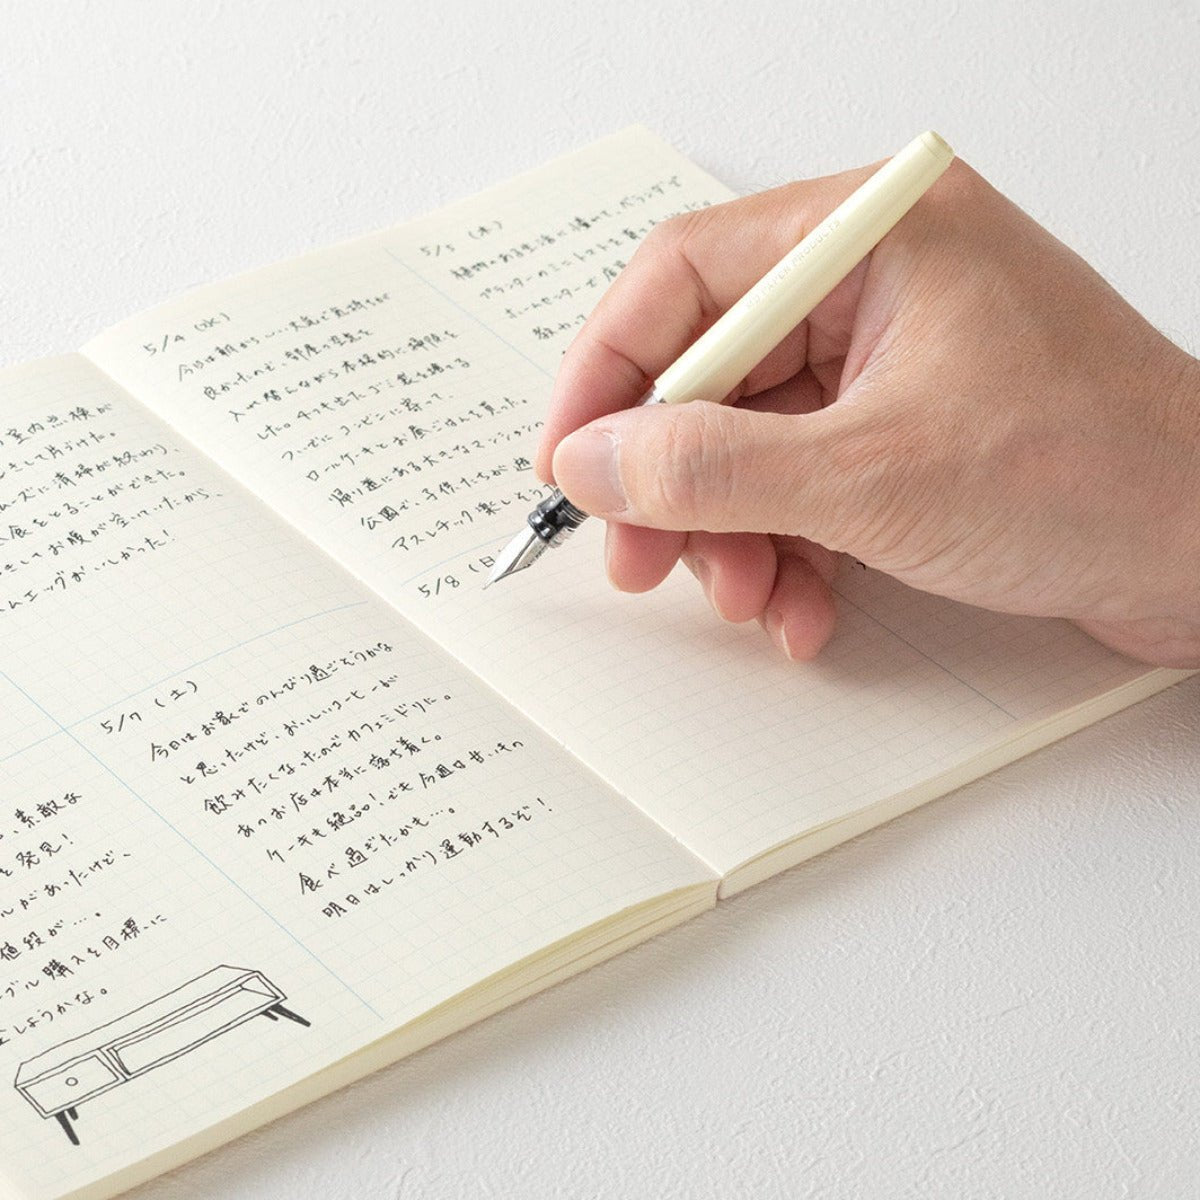 の室内点検が
をして片づけた。
ムーズに清掃が終わり、
食をとることができた。
をしてお腹が空いていたから、
ムエッグがおいしかった!
素敵な
を発見!
ルがあったけど、
値段が…。
ーブル購入を目標に
しようかな。
5/7 (土)
今日はお家でのんびり過ごそうかな
と思ったけど、おいしいコーヒーが
飲みたくなったのでカフェミドリに。
あのお店は本当に落ち着く。
ケーキも絶品!でも今週は甘いもの
食べ過ぎたかも…。
明日はしっかり運動するぞ!
5/4 (水)
今日は朝からいい天気で気持ちが
良かったので、部屋の空気を
入れ替えながら本格的に掃除を
した。4つも出たゴミ袋を捨てる
ついでにコンビニに寄って、
ロールケーキとお昼ごはんを買った。
帰り道にある大きなマンション
公園で、子供たちが遊
アスレチック楽しそう
5/5 (木)
植物のある生活に憧れて、ベランダで
プランターのミニトマトを
ホームセンターで店
教わっ
5/8 (日
MD PAPER PRODUCTS